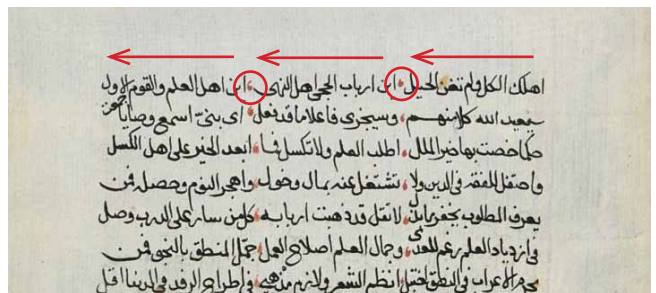 اهلك الكل ولم تغن الحيل اين ارباب الحجى اهل النهى اين اهل العلم والقوم الاول
سيعيد الله كلا منهم وسيجزى فاعلا ما قد فعل اى بنى اسمع وصايا جمعت
حكما خصت بها خير الملل اطلب العلم ولا تكسل فما ابعد الخير على اهل الكسل
واحتفل للفقه فى الدين ولا تشتغل عنه بمال وخول واهجر النوم وحصله فمن
يعرف المطلوب يحقر ما بذل لا تقل قد ذهبت اربابه كل من سار على الدرب وصل
فى ازدياد العلم رغم للعدى وجمال العلم اصلاح العمل جمل المنطق بالنحو فمن
يحرم الاعراب فى النطق اختبل انظم الشعر ولازم مذهبى فى اطراح الرفد فى الدنيا اقل